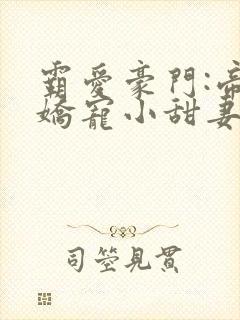 霸愛豪門:帝
嬌寵小甜妻
司空見貫